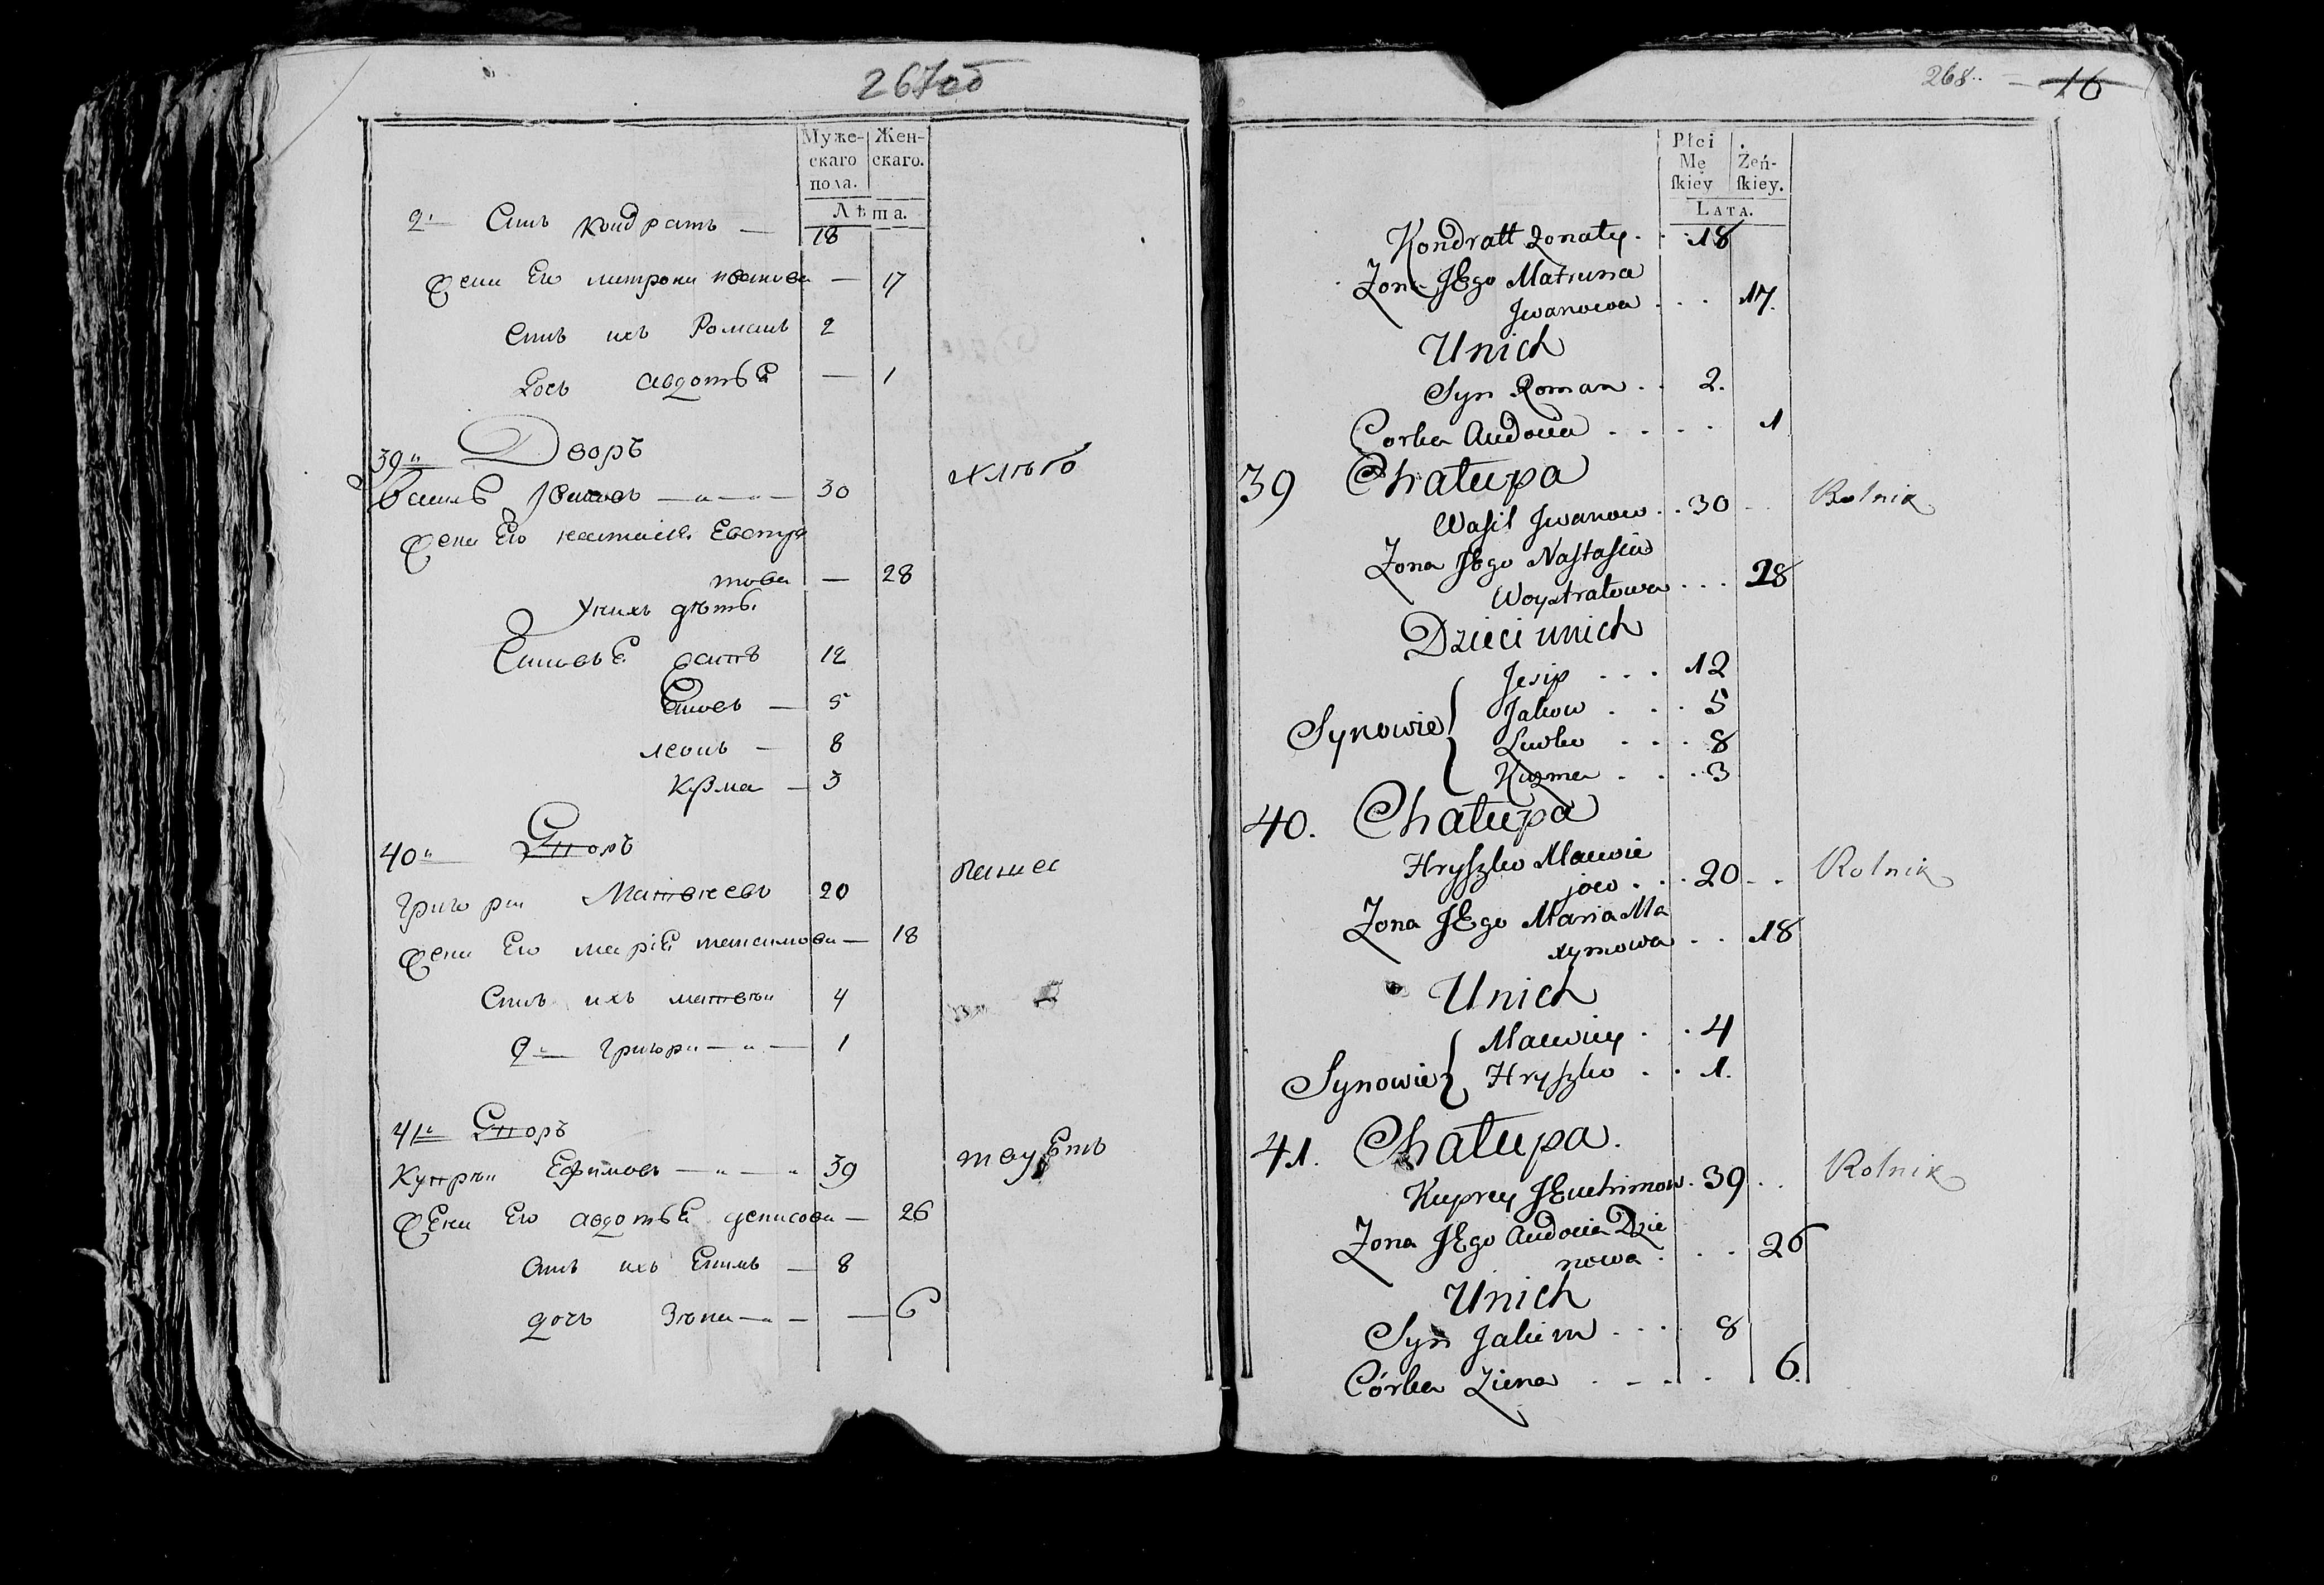 267об
Муже- Жен-
скаго скаго.
пола.
Лѣта.
2й Сынъ Кондратъ — 18
Жена Его матрона иванова — 17
Сынъ ихъ Романъ 2
Дочь авдотья — 1
39й Дворъ
Василь Ивановъ — 30 хлѣбо
Жена Его настасья Евстра
това — 28
Унихъ дѣти
Сыновья 12
5
леонъ — 8
Кузма — 3
40й Дворъ
Григори Матвѣевъ 20 пашет
Жена Его марія максимова — 18
Сынъ ихъ матвѣи 4
2й Григори — 1
41й Дворъ
Купрѣи Ефимовъ — 39
Жена Его авдотья денисова — 26
Сынъ ихъ Екимъ — 8
дочь Зѣна — 6
268 — 16
Płci
Mę Żeń-
ſkiey ſkiey.
Lata.
Kondratt Żonaty . . 18
Żona JEgo Matruna
Jwanowa . . . 17.
Unich
Syn Roman . . 2.
Corka Audocia . . . . 1
39 Chałupa
Waſil Jwanow . . 30 . . Rolnik
Żona JEgo Naſtaſcia
Woystratowa . . . 28
Dzieci unich
Jesip . . . 12
Jakow . . . 5
Synowie Lewko . . . 8
Kuzma . . . 3
40. Chałupa
Hryſzko Maćwie
jow . . . 20 . . Rolnik
Żona JEgo Maria Ma
xymowa . . 18
Unich
Maćwiey . . 4
Synowie Hryſzko . . 1.
41. Chałupa.
Kuprey JEuchimow . 39 . . Rolnik
Żona JEgo Audocia Dzie
nowa . . . 26
Unich
Syn Jakim . . . 8
Córka Ziena . . . . 6.